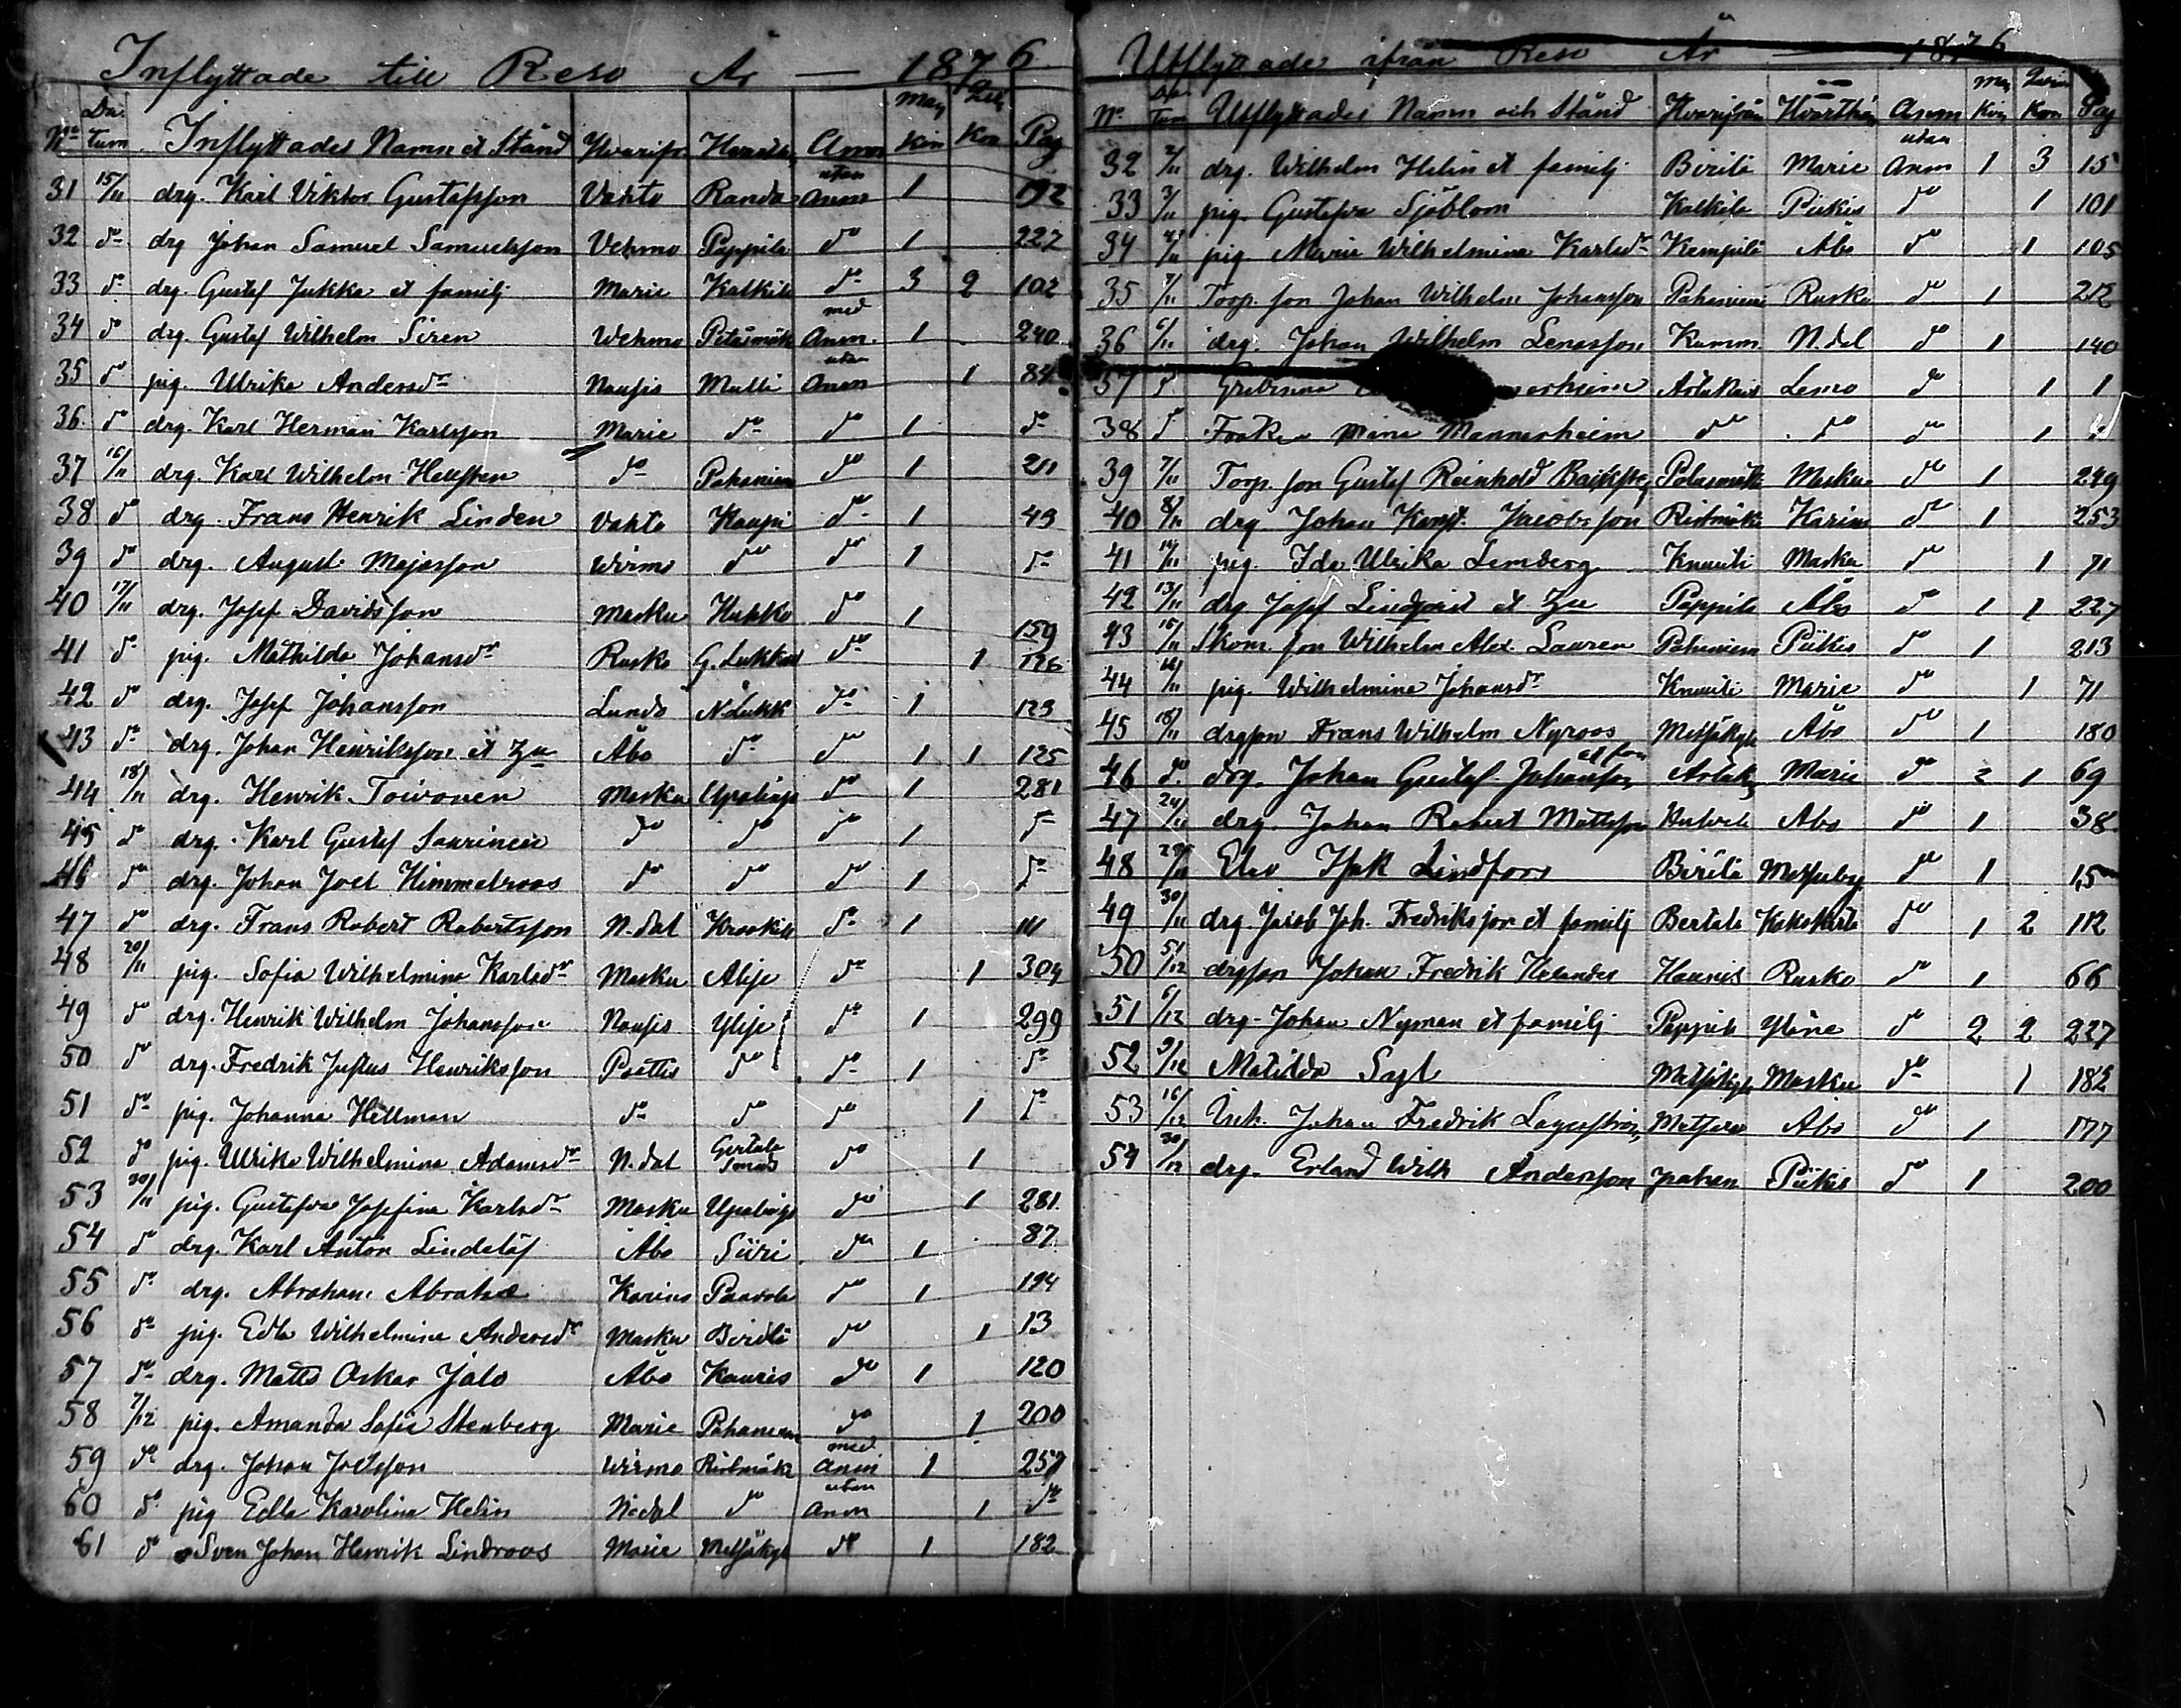 Inflyttade till Reso År — 1876
No Datum Inflyttades Namn et Stånd Hvarifr Hvarth Anm Mank Qvk Kön Pag
31 15/11 drg. Karl Viktor Gustafsson Vahto Randa utan Anm 1 192
32 do drg Johan Samuel Samuelsson Vehmo Pappila do 1 227
33 do drg. Gustaf Jukka et familj Marie Kalkila do 3 2 102
34 do drg. Gustaf Wilhelm Siren Wehmo med Anm. 1 240
35 do pig. Ulrika Andersdr Nousis Mulli utan Anm 1 84
36 do drg. Karl Herman Karlsson Marie do do 1 do
37 16/11 drg. Karl Wilhelm Hellsten do Pahaniem do 1 211
38 do drg. Frans Henrik Linden Vahto Kaupi do 1 49
39 do drg. August Majasson Wirmo do do 1 do
40 17/11 drg. Josef Davidsson Masku Hukko do 1 159
41 do pig. Mathilda Johansdr Rusko G. Lukkar do 1 126
42 do drg. Josef Johansson Lundo N Lukk do 1 123
43 do drg. Johan Henriksson et Zu Åbo do do 1 1 125
44 18/11 drg. Henrik Toivonen Masku Upalinge do 1 281
45 do drg. Karl Gustaf Saurinen do do do 1 do
46 do drg. Johan Joel Himmelroos do do do 1 do
47 do drg. Frans Robert Robertsson N.dal Krookila do 1 111
48 20/11 pig. Sofia Wilhelmina Karlsdr Masku Alije do 1 304
49 do drg. Henrik Wilhelm Johansson Nousis Ylije do 1 299
50 do drg. Fredrik Justus Henriksson Poettis do do 1 do
51 do pig. Johanna Hellman do do do 1 do
52 do pig. Ulrika Wilhelmina Adamsdr N.dal Gertala do 1
53 30/11 pig. Gustafva Josefina Karlsdr Masku Upalinge do 1 281
54 do drg. Karl Anton Lindelöf Åbo Siiri do 1 87
55 do drg. Abraham Abrahæ Karins Paavola do 1 194
56 do pig. Edla Wilhelmina Andersdr Masku Birilä do 1 13
57 do drg. Matts Oskar Jalo Åbo Kauris do 1 120
58 7/12 pig. Amanda Sofia Stenberg Marie Pahaniem do 1 200
59 do drg. Johan Joelsson Wirmo Ristimäki med Anm 1 257
60 do pig Edla Karolina Helin N.dal do utan Anm 1 do
61 do Sven Johan Henrik Lindroos Marie Metsäkyl do 1 182
Utflyttade ifrån Reso År — 1876
No Datum Utflyttades Namn och Stånd Hvarifrån Hvarthän Anm Man Kön Qvin Kön Pag
32 2/11 drg. Wilhelm Helin et familj Birilä Marie utan Anm 1 3 15
33 3/11 pig. Gustafva Sjöblom Kalkila Piikis do 1 101
34 4/11 pig Maria Wilhelmina Karlsdr Kempilä Åbo do 1 105
35 4/11 Torp. son Johan Wilhelm Johansson Pahaniemi Rusko do 1 212
36 6/11 drg. Johan Wilhelm Lenasson Kumm N.dal do 1 140
37 do Grefvinna erheim Lemo do 1 1
38 do Mannerheim do do do 1
39 7/11 Torp. son Gustaf Reinhold Masku do 1 249
40 8/11 drg. Johan Konst. Jacobsson Ristimäki Karins do 1 253
41 11/11 pig. Ida Ulrika Lemberg Knuuti Masku do 1 71
42 13/11 drg Josef Lindqvist et Zu Pappila Åbo do 1 1 227
43 15/11 Skom. son Wilhelm Alex. Lauren Pahaniem Piikis do 1 213
44 16/11 pig. Wilhelmina Johansdr Knuuti Marie do 1 71
45 18/11 drgson Frans Wilhelm Nyroos Metsäkyl Åbo do 1 180
46 do drg. Johan Gustaf Johansson et fam Artuk Marie do 2 1 69
47 24/11 drg. Johan Robert Mattsson Åbo do 1 38
48 29/11 Elev Isak Lindfors Birilä Metseby do 1 15
49 30/11 drg. Jacob Joh. Fredriksson et familj Bertala Kakskerta do 1 2 112
50 5/12 drgson Johan Fredrik Helander Haunis Rusko do 1 66
51 6/12 drg. Johan Nyman et familj Pappila Yläne do 2 2 227
52 9/12 Matilda Sagl Metsäkyl Masku do 1 182
53 16/12 Inh. Johan Fredrik Lagerström Åbo do 1 177
54 30/12 drg. Erland Wilh Andersson Piikis do 1 200